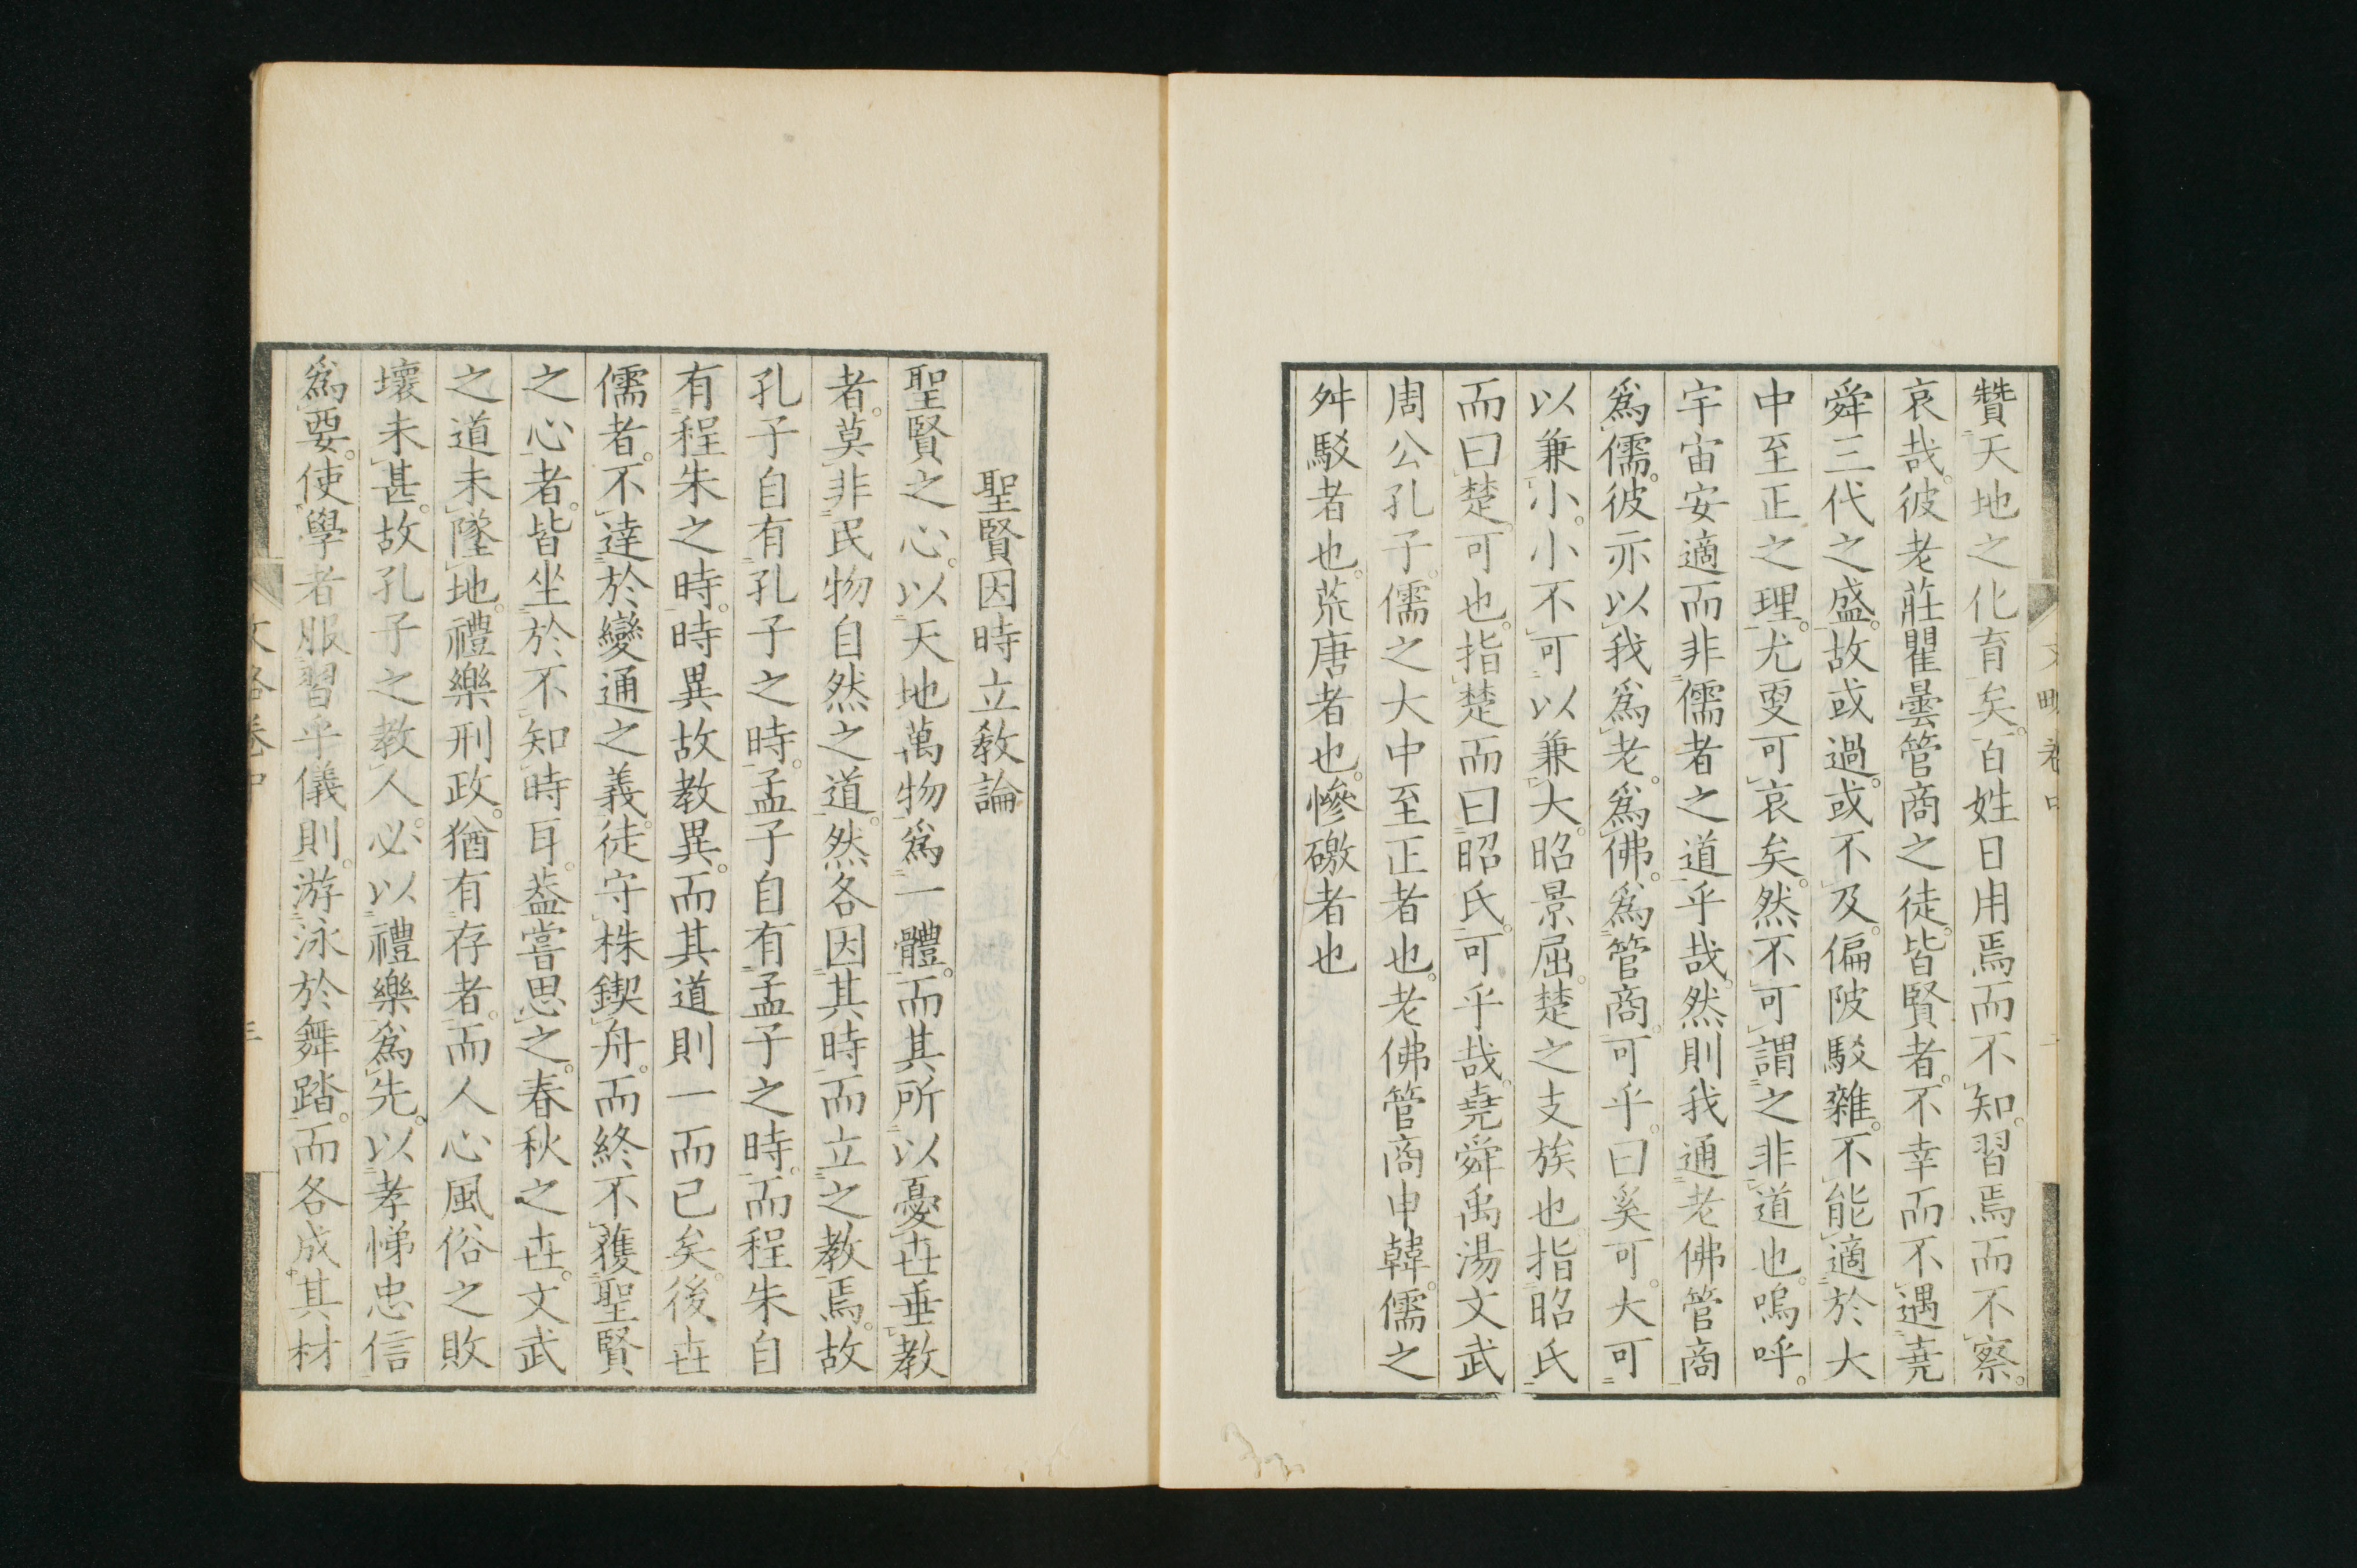 贊天地之化育矣。百姓日用焉而不知。習焉而不察。
哀哉。彼老莊瞿曇管商之徒。皆賢者。不幸而不遇堯
舜三代之盛。故或過。或不及。偏陂駁雜。不能適於大
中至正之理。尤更可哀矣。然不可謂之非道也。嗚呼。
宇宙安適而非儒者之道乎哉。然則我通老佛管商
爲儒。彼亦以我爲老。爲佛。爲管商。可乎。曰奚可。大可
以兼小。小不可以兼大。昭景屈。楚之支族也。指昭氏
而曰楚。可也。指楚而曰昭氏。可乎哉。堯舜禹湯文武
周公孔子。儒之大中至正者也。老佛管商申韓。儒之
舛駁者也。荒唐者也。慘礉者也
聖賢因時立教論
聖賢之心。以天地萬物爲一體。而其所以憂世垂教
者。莫非民物自然之道。然各因其時而立之教焉。故
孔子自有孔子之時。孟子自有孟子之時。而程朱自
有程朱之時。時異故教異。而其道則一而已矣。後世
儒者。不達於變通之義。徒守株鍥舟。而終不獲聖賢
之心者。皆坐於不知時耳。蓋嘗思之。春秋之世。文武
之道未墜地。禮樂刑政。猶有存者。而人心風俗之敗
壞未甚。故孔子之教人。必以禮樂爲先。以孝悌忠信
爲要。使學者服習乎儀則。游泳於舞踏。而各成其材
文略卷中
三